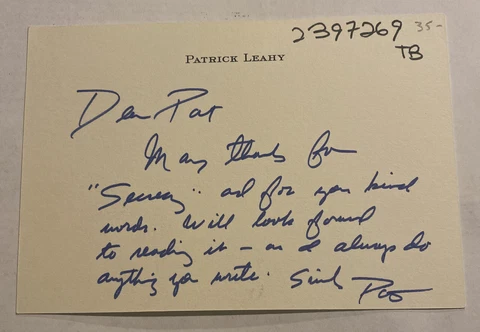 2397269 35-
TB
PATRICK LEAHY
Dear Pat
Many thanks for
"Secrecy" and for your kind
words. Will look forward
to reading it – as I always do
anything you write. Sincerely
Pat